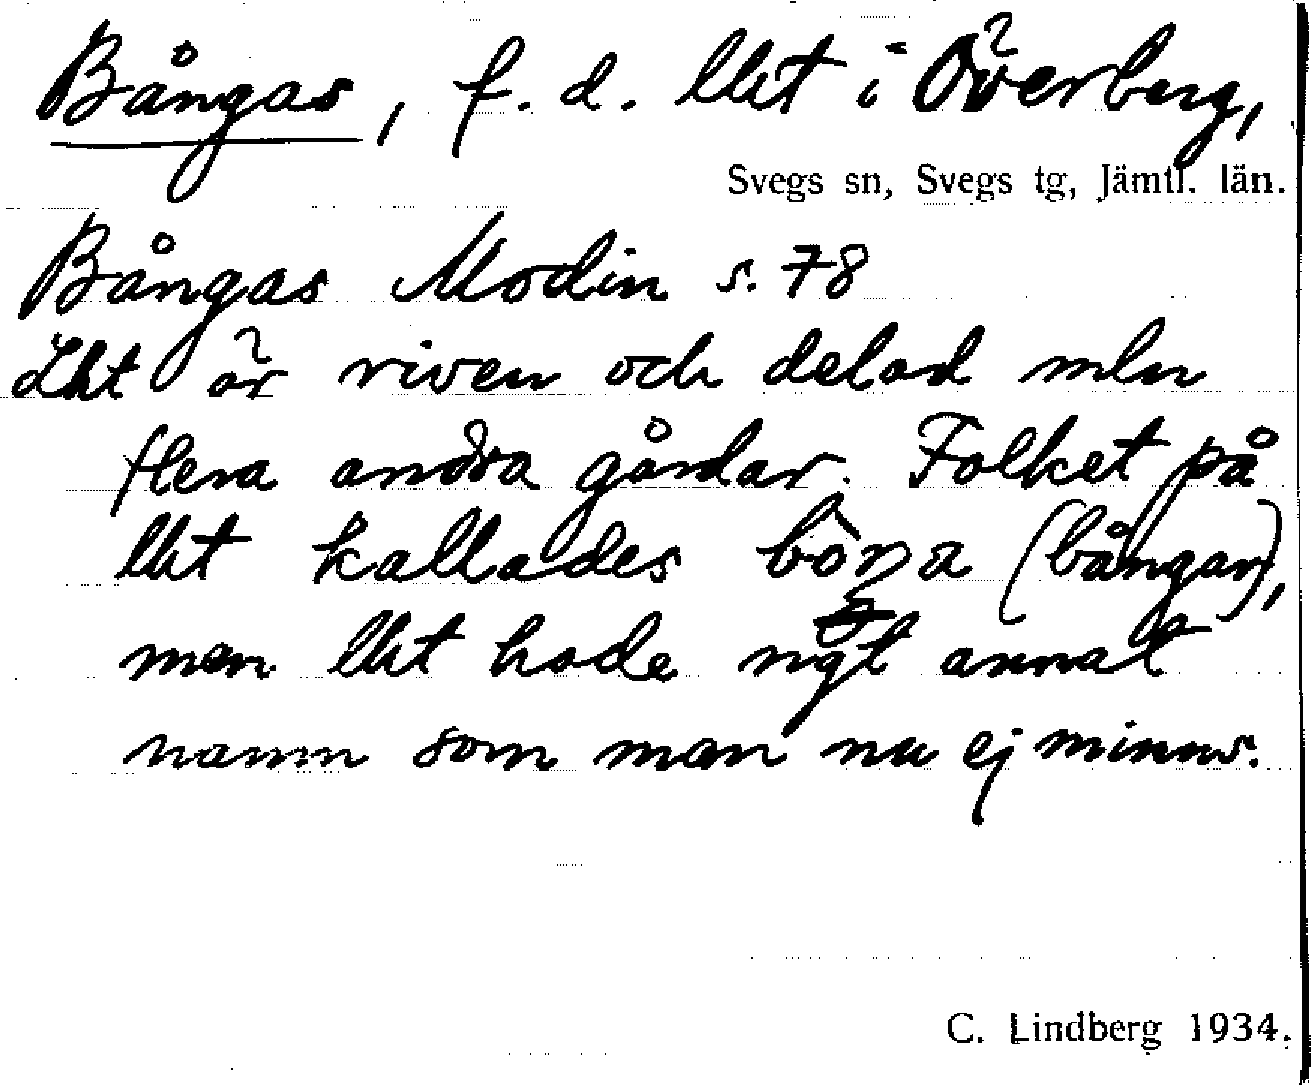 Bångas, f. d. lht i Överberg,
Svegs sn, Svegs tg, Jämtl. län.
Bångas Modin s. 78
Lht är riven och delad mln
flera andra gårdar. Folket på
lht kallades (bångar),
men lht hade ngt annat
namn som man nu ej minns.
C. Lindberg 1934.